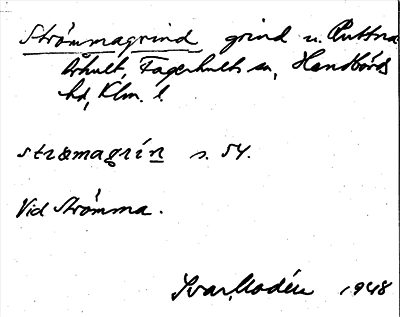 Strömmagrind grind u. Ruttna
Århult, Fagerhults sn, Handbörds
hd, Klm. l.
strømagrín s. 54.
Vid Strömma.
Ivar Modéer 1948